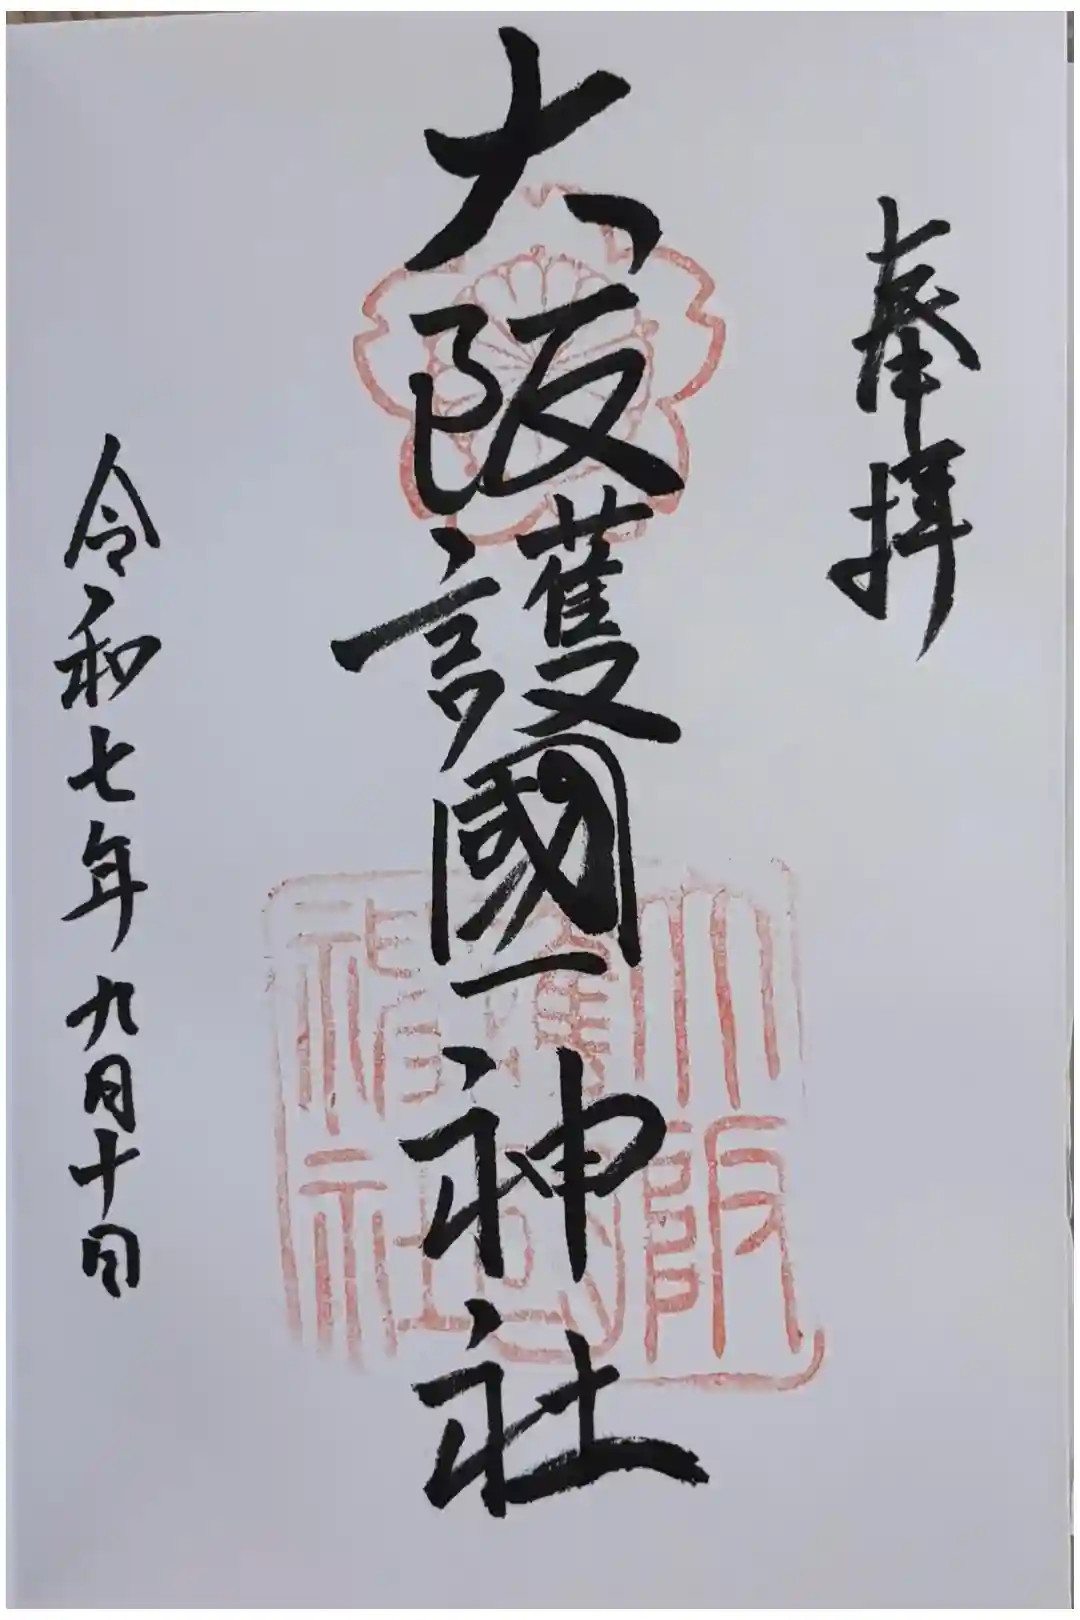 奉拝
大阪護國神社
大阪護国神社
令和七年九月十日